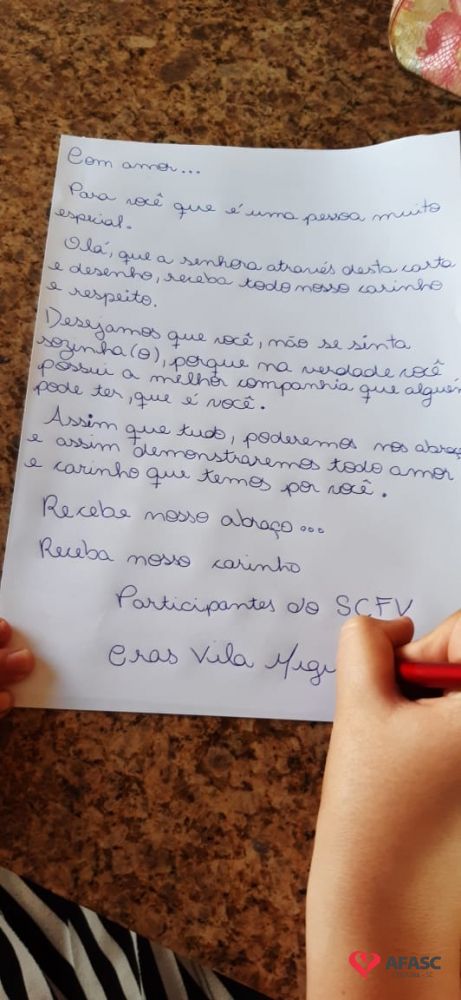 Com amor...
Para você que é uma pessoa muito
especial.
Olá, que a senhora através desta carta
e desenho, receba todo nosso carinho
e respeito.
Desejamos que você, não se sinta
sozinha(o), porque na verdade você
possui a melhor companhia que alguém
pode ter, que é você.
Assim que tudo, poderemos nos abraç
e assim demonstraremos todo amor
e carinho que temos por você.
Recebe nosso abraço...
Receba nosso carinho
Participantes do SCFV
Cras Vila Migu
AFASC